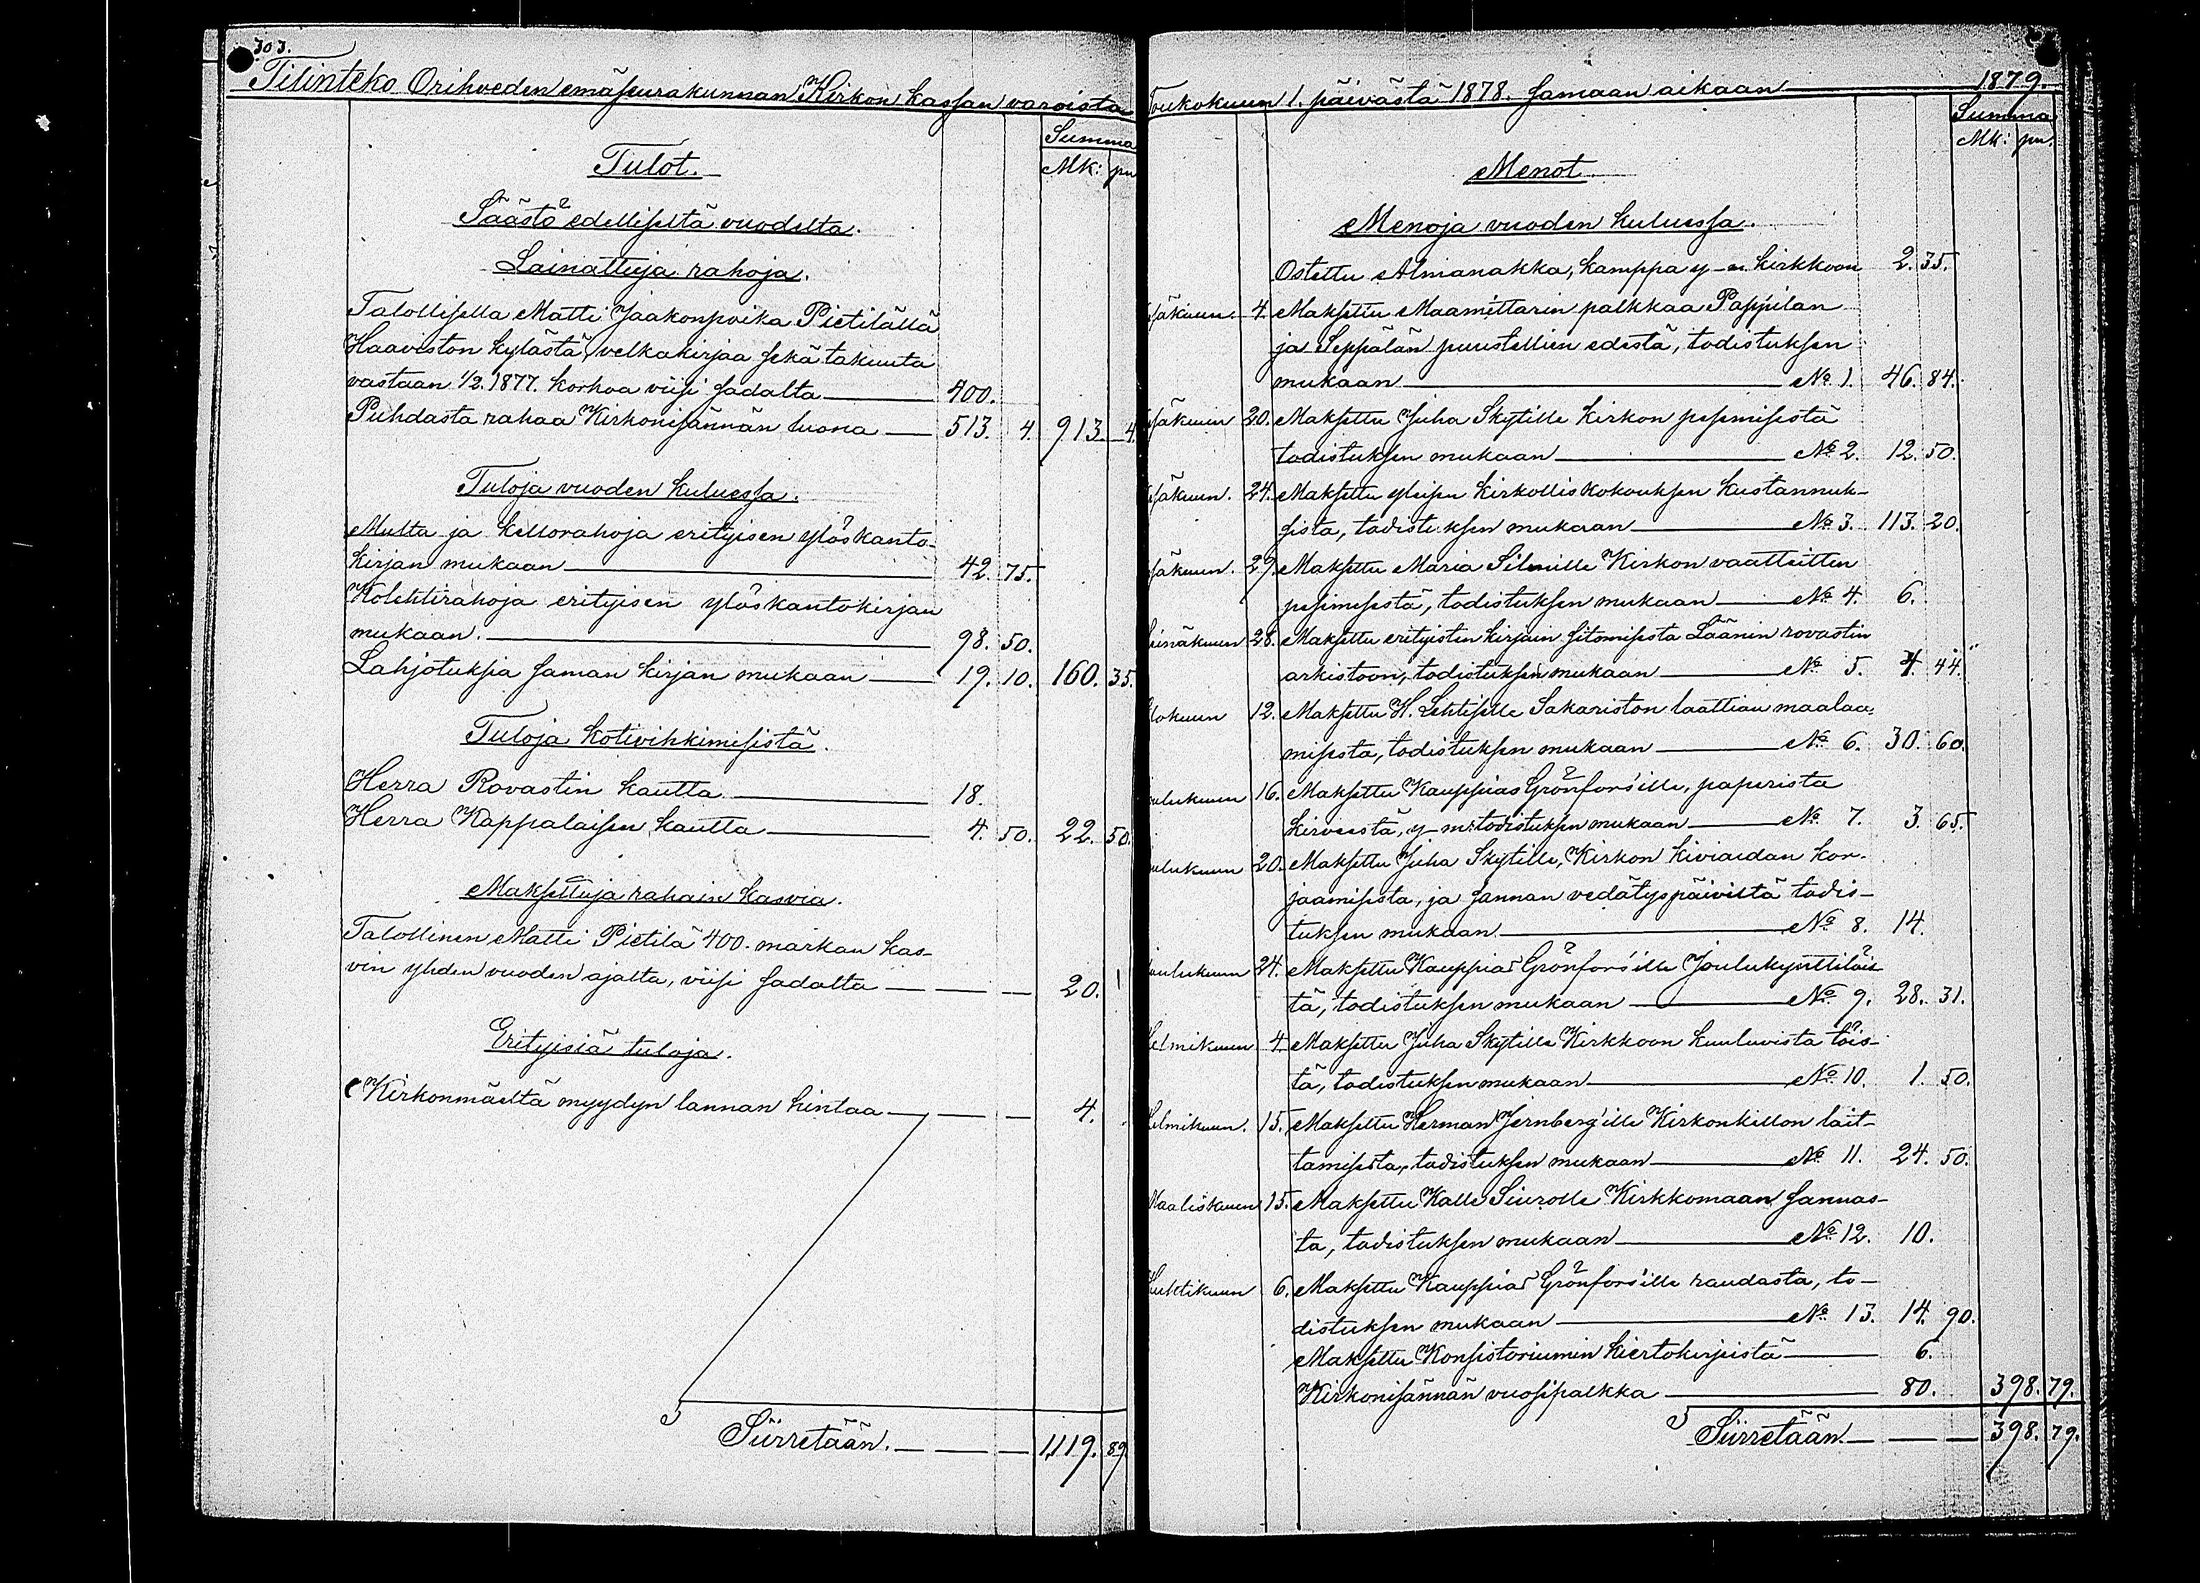 303.
Tilinteko Orihveden emäseurakunnan Kirkon kassan varoista
Summa
Tulot. Mk: pn
Säästö edelliseltä vuodelta.
Lainattuja rahoja.
Talollisella Matti Jaakonpoika Pietilällä
Haaviston kylästä, velkakirjaa sekä takuuta
vastaan 1/2. 1877. korkoa viisi sadalta — 400.
Puhdasta rahaa Kirkonisännän luona — 513. 4. 913. 4.
Tuloja vuoden kuluessa.
Multa ja kellorahoja erityisen ylöskanto-
kirjan mukaan — 42. 75.
Kolehtirahoja erityisen ylöskantokirjan
mukaan. — 98. 50.
Lahjotuksia saman kirjan mukaan — 19. 10. 160. 35.
Tuloja kotivihkimisistä.
Herra Rovastin kautta — 18.
Herra Kappalaisen kautta — 4. 50. 22. 50.
Maksettuja rahain kasvia.
Talollinen Matti Pietilä 400. markan kas-
vin yhden vuoden ajalta, viisi sadalta — — — 20.
Erityisiä tuloja.
Kirkonmäeltä myydyn lannan hintaa — — — 4.
Siirretään. — — — 1,119. 89.
Toukokuun 1. päivästä 1878. samaan aikaan — 1879.
Summa
Menot Mk: pn.
Menoja vuoden kuluessa.
Ostettu Almanakka, kamppa y–m kirkkoon 2. 35.
säkuun. 4. Maksettu Maamittarin palkkaa Pappilan
ja Seppälän puustellien edestä, todistuksen
mukaan — No 1. 46. 84.
säkuun 20. Maksettu Juha Skytille Kirkon pesemisestä
todistuksen mukaan — No 2. 12. 50.
säkuun. 24. Maksettu yleisen kirkolliskokouksen kustannuk-
sista, todistuksen mukaan — No 3. 113. 20.
säkuun. 29. Maksettu Maria Silenille Kirkon vaatteitten
pesemisestä, todistuksen mukaan — No 4. 6.
einäkuun 28. Maksettu erityisten kirjain sitomisesta Läänin rovastin
arkistoon, todistuksen mukaan — No 5. 4. 44.
lokuun 12. Maksettu H. Lehtiselle Sakariston laattian maalaa-
misesta, todistuksen mukaan — No 6. 30. 60.
oulukuun 16. Maksettu Kauppias Grönfors'ille, paperista
kirveestä, y–m. todistuksen mukaan — No 7. 3. 65.
oulukuun 20. Maksettu Juha Skytille, Kirkon kiviaidan kor-
jaamisesta, ja sannan vedätyspäivistä todis-
tuksen mukaan. — No 8. 14.
oulukuun 24. Maksettu Kauppias Grönfors'ille Joulukynttilöis-
tä, todistuksen mukaan — No 9. 28. 31.
Helmikuun 4. Maksettu Juha Skytille Kirkkoon kuuluvista töis-
tä, todistuksen mukaan — No 10. 1. 50.
Helmikuun. 15. Maksettu Herman Jernberg'ille Kirkonkellon lait-
tamisesta, todistuksen mukaan — No 11. 24. 50.
Maaliskuun 15. Maksettu Kalle Siurolle Kirkkomaan sannas-
ta, todistuksen mukaan — No 12. 10.
Huhtikuun 6. Maksettu Kauppias Grönfors'ille raudasta, to-
distuksen mukaan — No 13. 14. 90.
Maksettu Konsistoriumin kiertokirjeistä — 6.
Kirkonisännän vuosipalkka — 80. 398. 79.
Siirretään. — — — 398. 79.